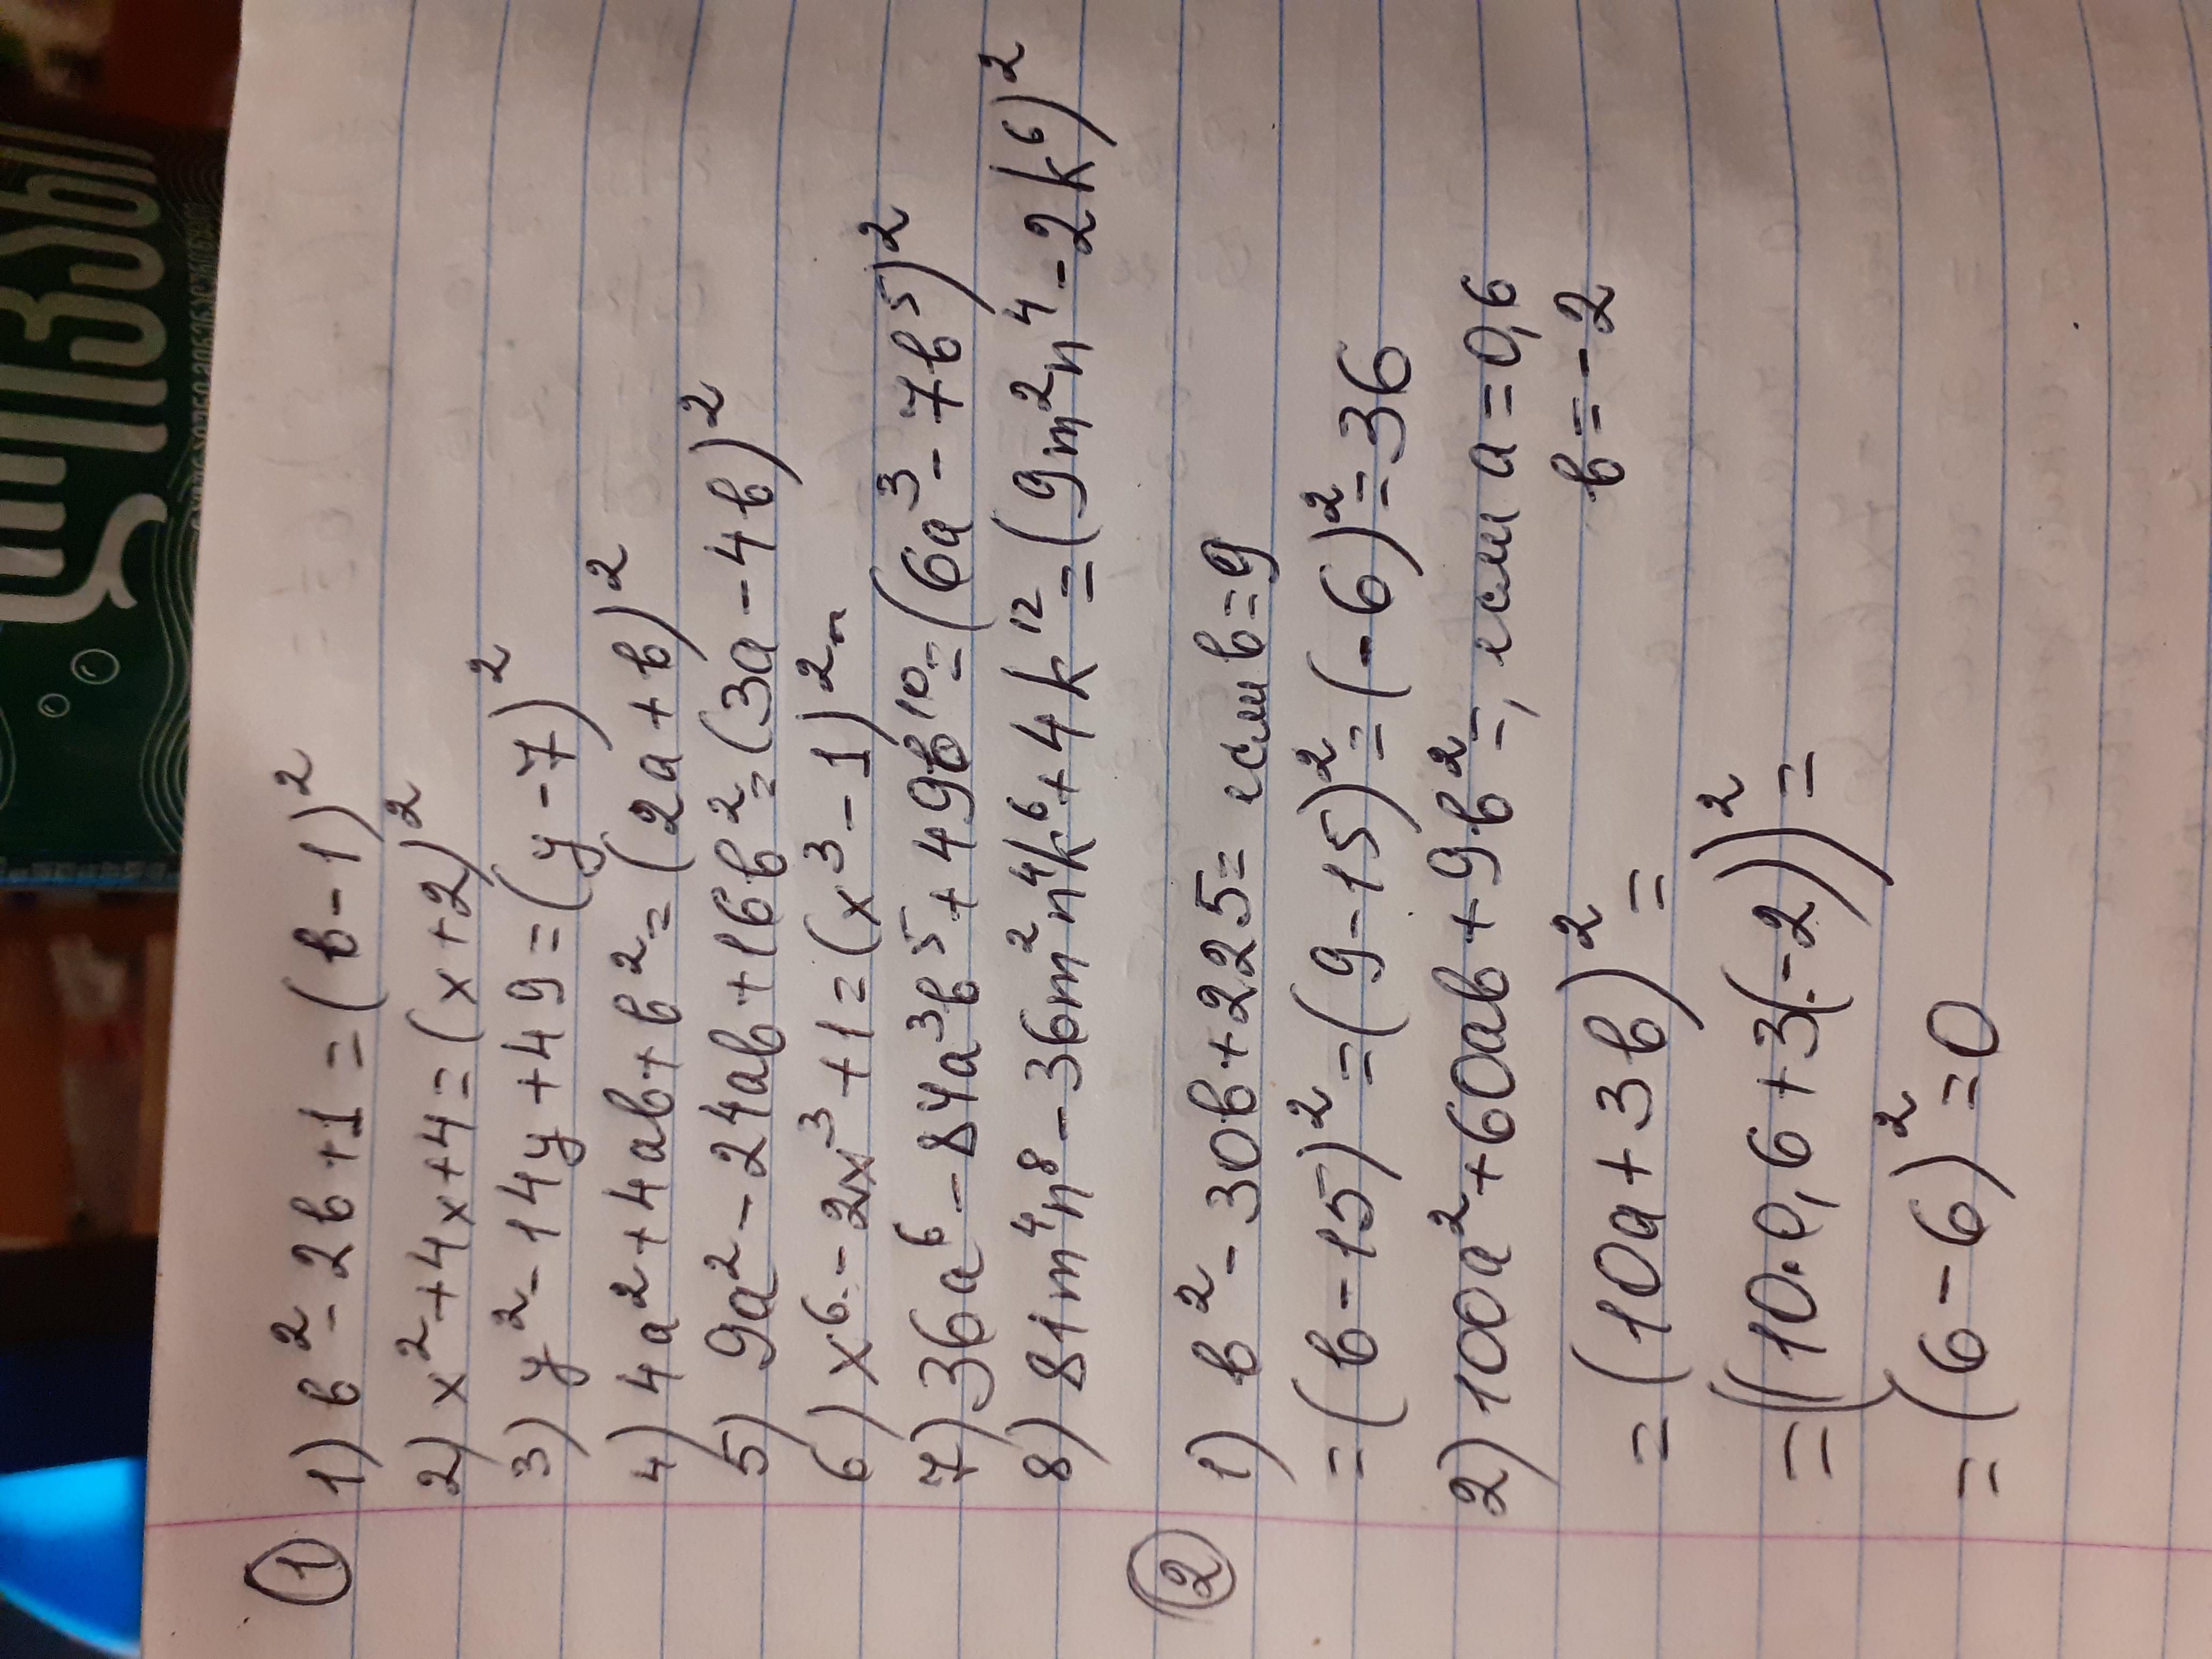 ① 1) b² - 2b + 1 = (b - 1)²
2) x² + 4x + 4 = (x + 2)²
3) y² - 14y + 49 = (y - 7)²
4) 4a² + 4ab + b² = (2a + b)²
5) 9a² - 24ab + 16b² = (3a - 4b)²
6) x⁶ - 2x³ + 1 = (x³ - 1)²
7) 36a⁶ - 84a³b⁵ + 49b¹⁰ = (6a³ - 7b⁵)²
8) 81m⁴n⁸ - 36m²n⁴k⁶ + 4k¹² = (9m²n⁴ - 2k⁶)²
② 1) b² - 30b + 225 = если b = 9
= (b - 15)² = (9 - 15)² = (-6)² = 36
2) 100a² + 60ab + 9b² =, если a = 0,6
b = -2
= (10a + 3b)² =
= ((10·0,6 + 3(-2))² =
= (6 - 6)² = 0